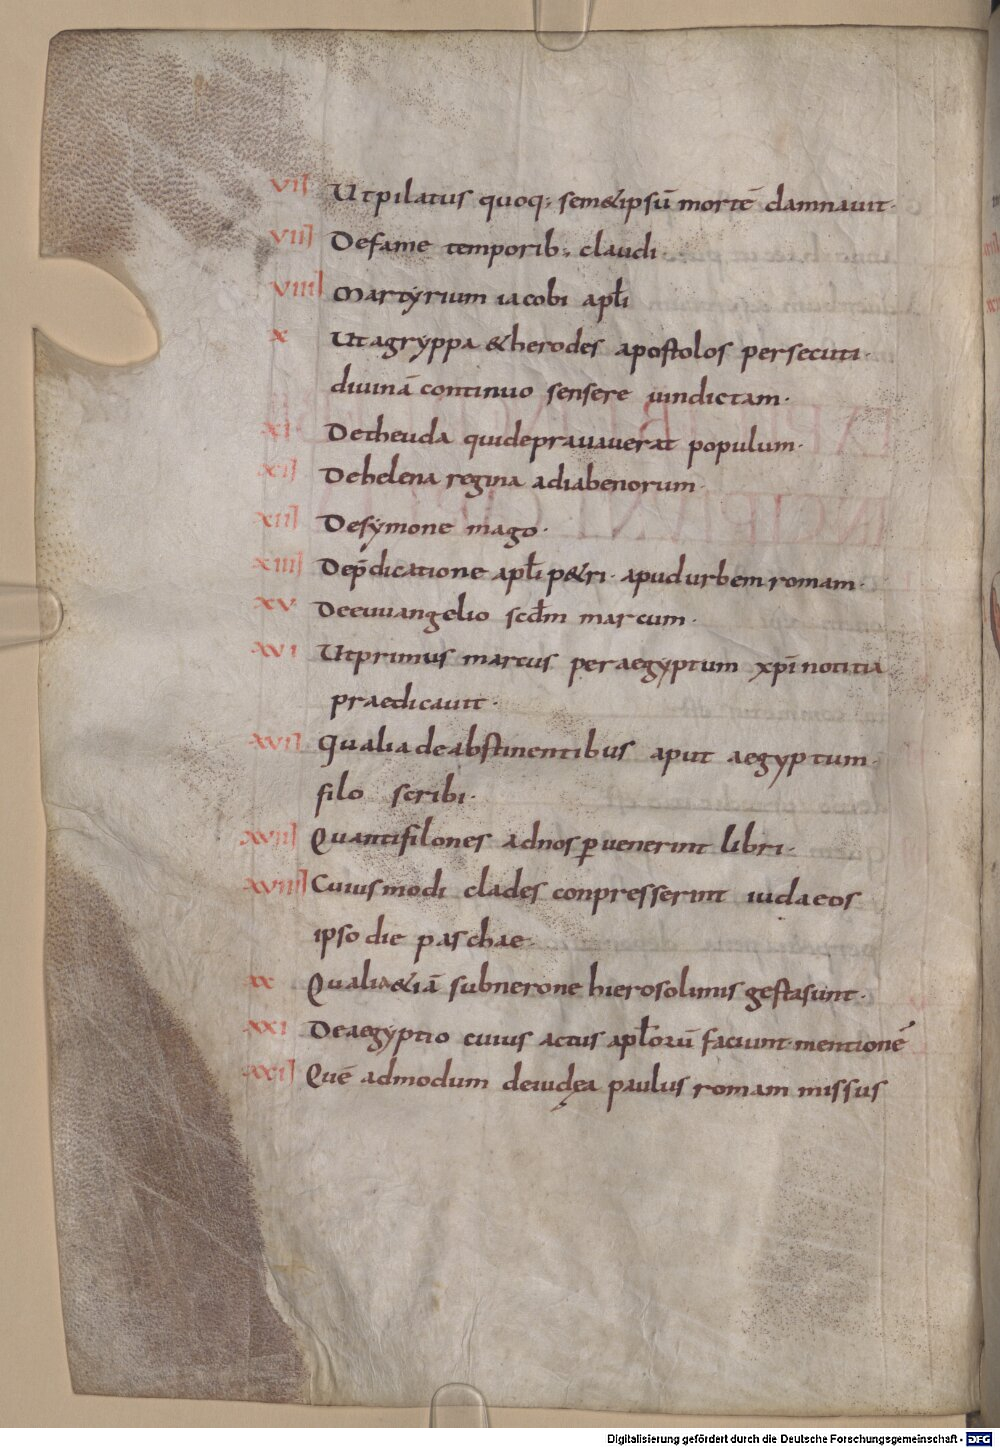 VII Utpilatus quoq; sem&ipsū mortē damnauit·
VIII Defame temporib; claudi
VIIII Martyrium iacobi apłi
X Utagryppa &herodes apostolos persecuti·
diuinā continuo sensere uindictam·
XI Detheuda quideprauauerat populum·
XII Dehelena regina adiabenorum·
XIII Desymone mago·
XIIII Dep̄dicatione apłi p&ri· apudurbem romam·
XV Deeuuangelio scđm marcum·
XVI Utprimus marcus peraegyptum xp̄i notitia
praedicauit·
XVII Qualia deabstinentibus aput aegyptum·
filo scribi·
XVIII Quantifilones adnos ꝑuenerint libri·
XVIIII Cuiusmodi clades conpresserint iudaeos
ipso die paschae·
XX Qualia&iā subnerone hierosolimis gestasunt·
XXI Deaegyptio cuius actus apłorū faciunt mentionē
XXII Quē admodum deiudęa paulus romam missus
Digitalisierung gefördert durch die Deutsche Forschungsgemeinschaft - DFG